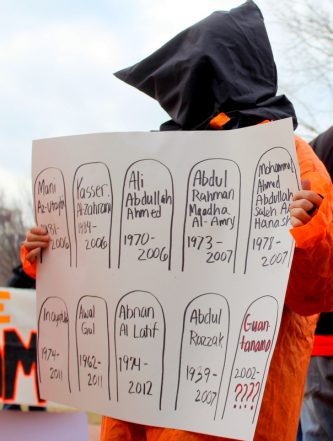 Mani
Az-Utaybi
1981-
2006
Yasser
Al-Zahrani
1984-
2006
Ali
Abdullah
Ahmed
1970-
2006
Abdul
Rahman
Maadha
Al-Amry
1973-
2007
Mohammad
Ahmed
Abdullah
Saleh Al
Hanashi
1978-
2007
Inayatullah
1974-
2011
Awal
Gul
1962-
2011
Abnan
Al Latif
1974-
2012
Abdul
Razzak
1939-
2007
Guan
tanamo
2002-
????